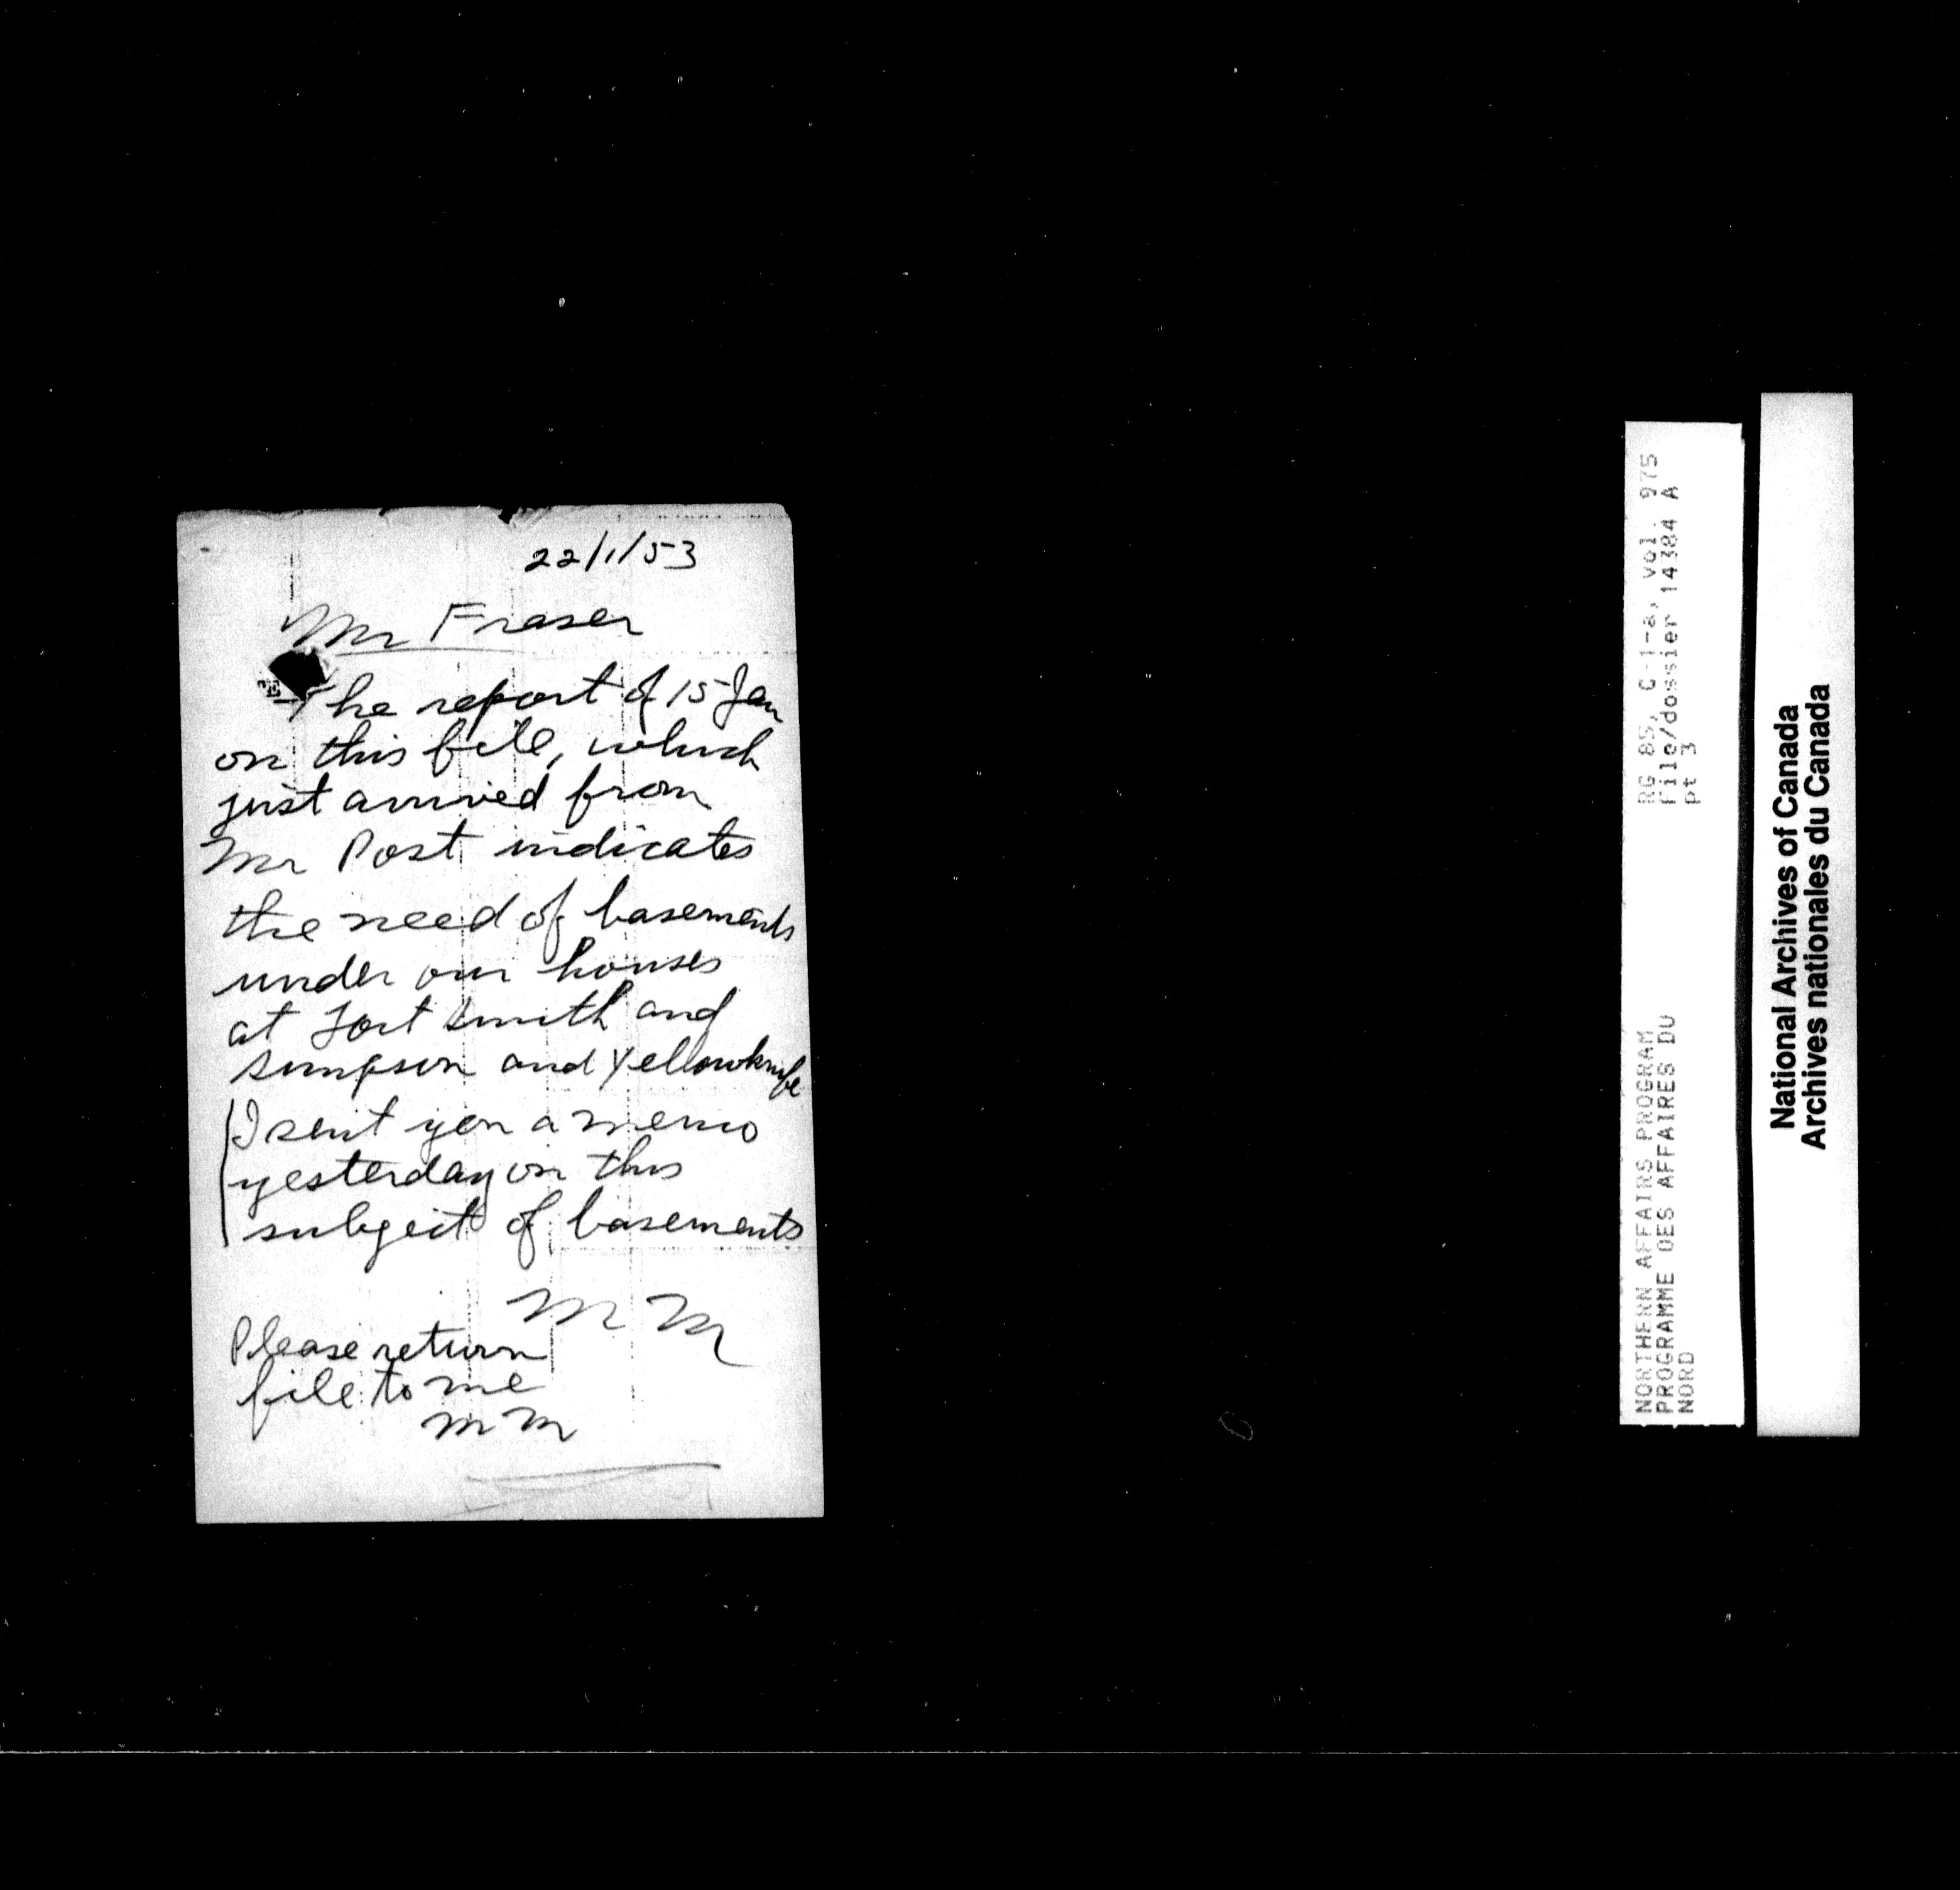 22/1/53
Mr Fraser
The report of 15 Jan
on this file, which
just arrived from
Mr Post indicates
the need of basements
under our houses
at Fort Smith and
Simpson and Yellowknife
I sent you a memo
yesterday on this
subject of basements
M M
Please return
file to me
M M
RG 85, C-1-a, vol. 975
File/dossier 14384 A
pt 3
NORTHERN AFFAIRS PROGRAM
PROGRAMME DES AFFAIRES DU
NORD
National Archives of Canada
Archives nationales du Canada